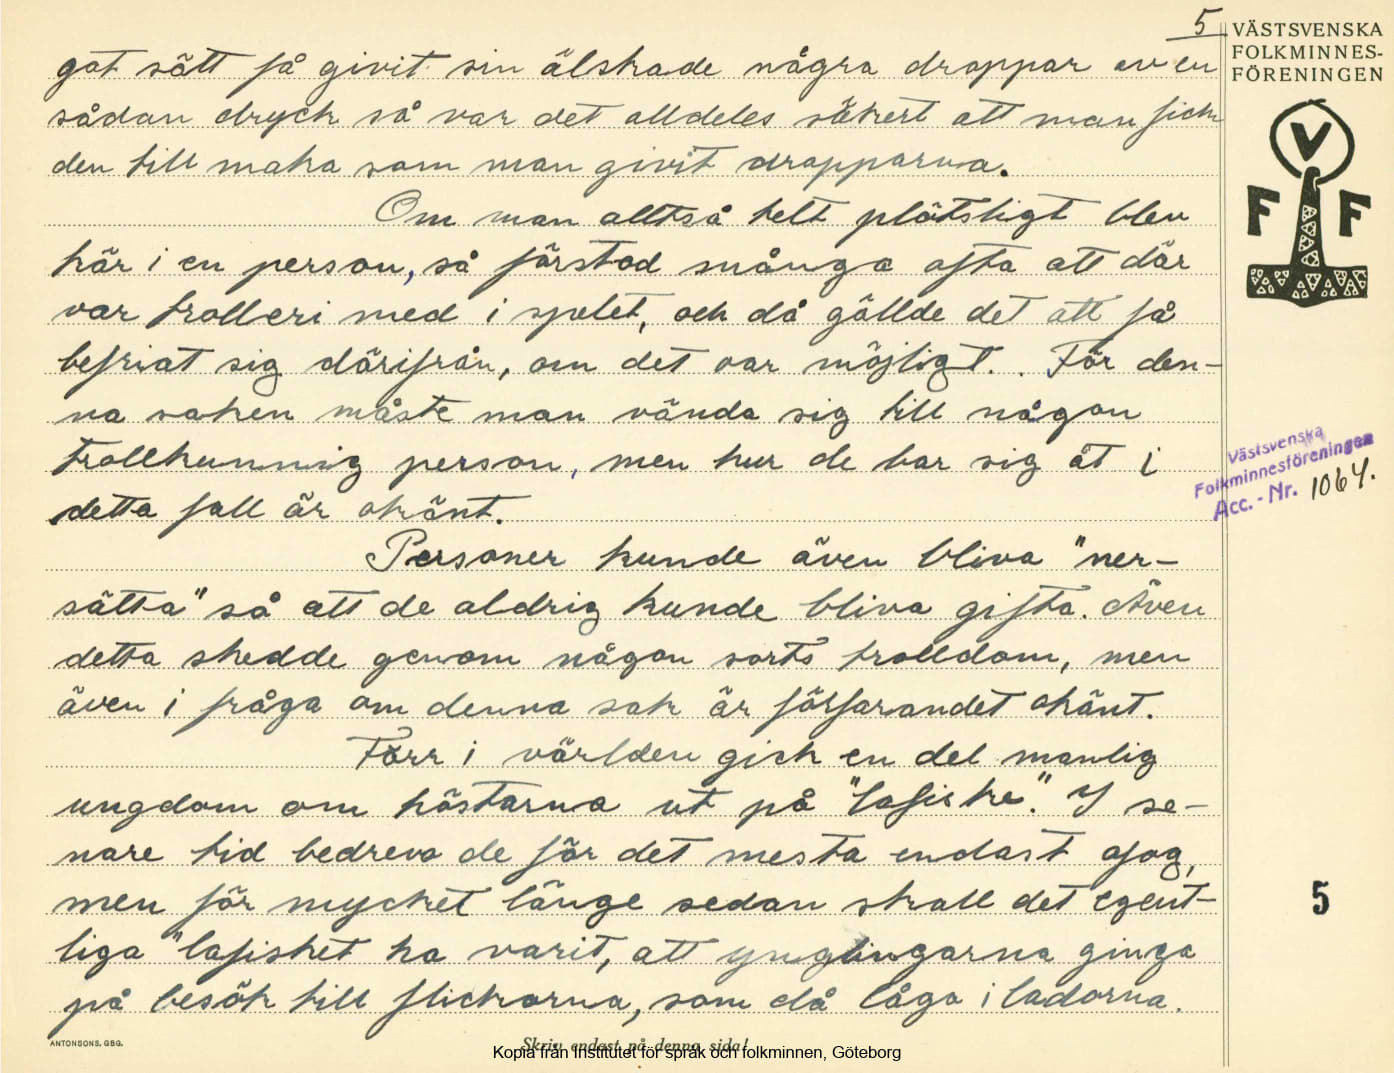 5
VÄSTSVENSKA
FOLKMINNES-
FÖRENINGEN
V
F F
got sätt få givit sin älskade några droppar av en
sådan dryck så var det alldeles säkert att man fick
den till maka som man givit dropparna.
Om man alltså helt plötsligt blev
kär i en person, så förstod många ofta att där
var trolleri med i spelet, och då gällde det att få
befriat sig därifrån, om det var möjligt. För den-
na saken måste man vända sig till någon
trollkunnig person, men hur de bar sig åt i
detta fall är okänt.
Västsvenska
Folkminnesföreningen
Acc. - Nr. 1064.
Personer kunde även bliva "ner-
sätta" så att de aldrig kunde bliva gifta. Även
detta skedde genom någon sorts trolldom, men
även i fråga om denna sak är förfarandet okänt.
Förr i världen gick en del manlig
ungdom om höstarna ut på "lafiske". I se-
nare tid bedrevo de för det mesta endast ofog,
men för mycket länge sedan skall det egent-
liga "lafisket ha varit, att ynglingarna ginga
på besök till flickorna, som då lågo i ladorna.
5
ANTONSONS, GBG.
Skriv endast på denna sida!
Kopia från Institutet för språk och folkminnen, Göteborg